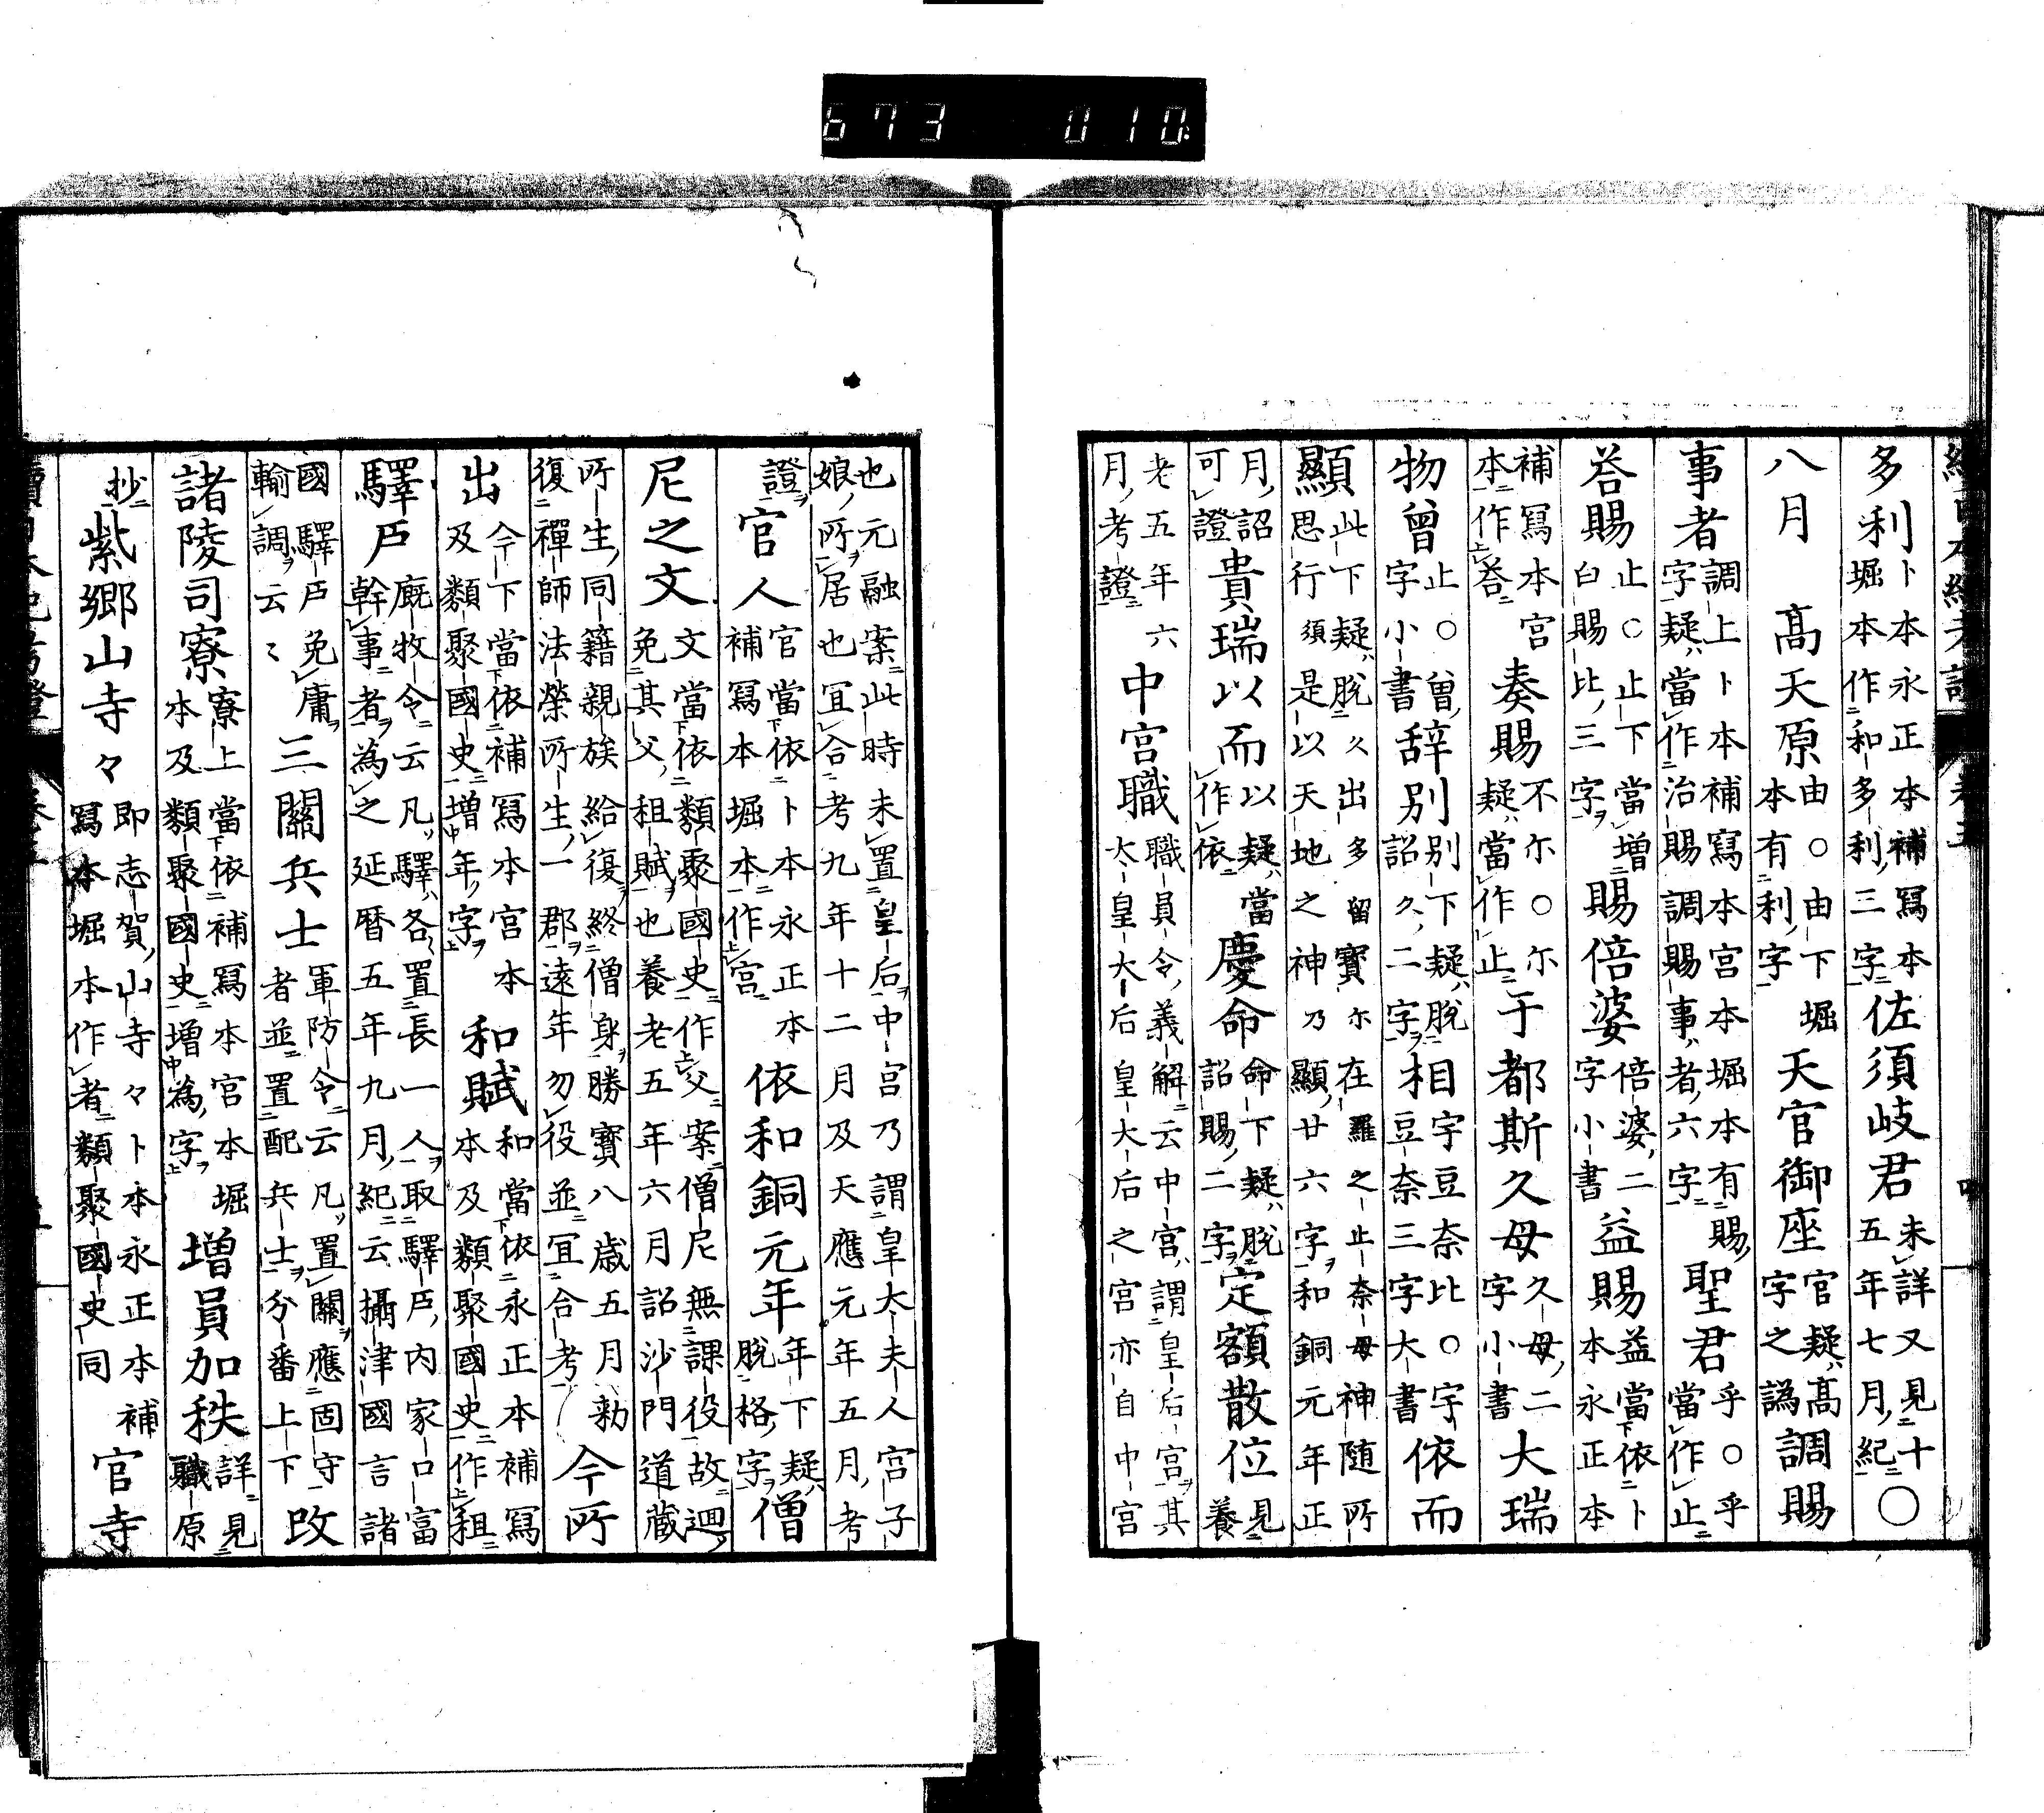 673 010
多利卜本永正本補寫本堀本作和多利三字佐須岐君未詳又見十五年七月紀○
八月 高天原由○由下堀本有利字天官御座官疑高字之譌調賜
事者調上卜本補寫本宮本堀本有賜字疑當作治賜調賜事者六字聖君乎○乎當作止
荅賜止○止下當增臼賜比三字賜倍婆倍婆二字小書益賜益當依卜本永正本
補寫本宮本作荅奏賜不尓○尓疑當作止于都斯久母久母二字小書大瑞
物曾止○曽字小書辞別別下疑脫詔久二字相豆奈三字比○字大書依而
顯此下疑脫久出多留寶尓在羅之止奈母神随所思行須是以天地之神乃顯廿六字和銅元年正
月詔可證貴瑞以而以疑當作依慶命命下疑脫詔賜二字定額散位見養
老五年六月考證中宮職職員令義解云中宮謂皇后宮其太皇大后皇大后之宮亦自中宮
也元融案此時未置皇后中宮乃謂皇太夫人宮子娘所居也冝合考九年十二月及天應元年五月考
證官人官當依卜本永正本補寫本堀本作宮依和銅元年年下疑脫格字僧
尼之文文當依類聚國史作父案僧尼無課役故迴免其父租賦也養老五年六月詔沙門道藏
所生同籍親族給復終僧身勝寶八歳五月勅復禪師法榮所生一郡遠年勿役並冝合考今所
出今下當依補寫本宮本及類聚國史增年字和賦和當依永正本補寫本及類聚國史作租
驛戸廐牧令云凡驛各置長一人取驛戸内家口富幹事者為之延暦五年九月紀云攝津國言諸
國驛戸免庸輸調云〻三關兵士軍防令云凡置關應固守者並置配兵士分番上下改
諸陵司寮寮上當依補寫本宮本堀本及類聚國史增為字增員加秩詳見職原
抄紫郷山寺々即志賀山寺々卜本永正本補寫本堀本作者類聚國史同官寺